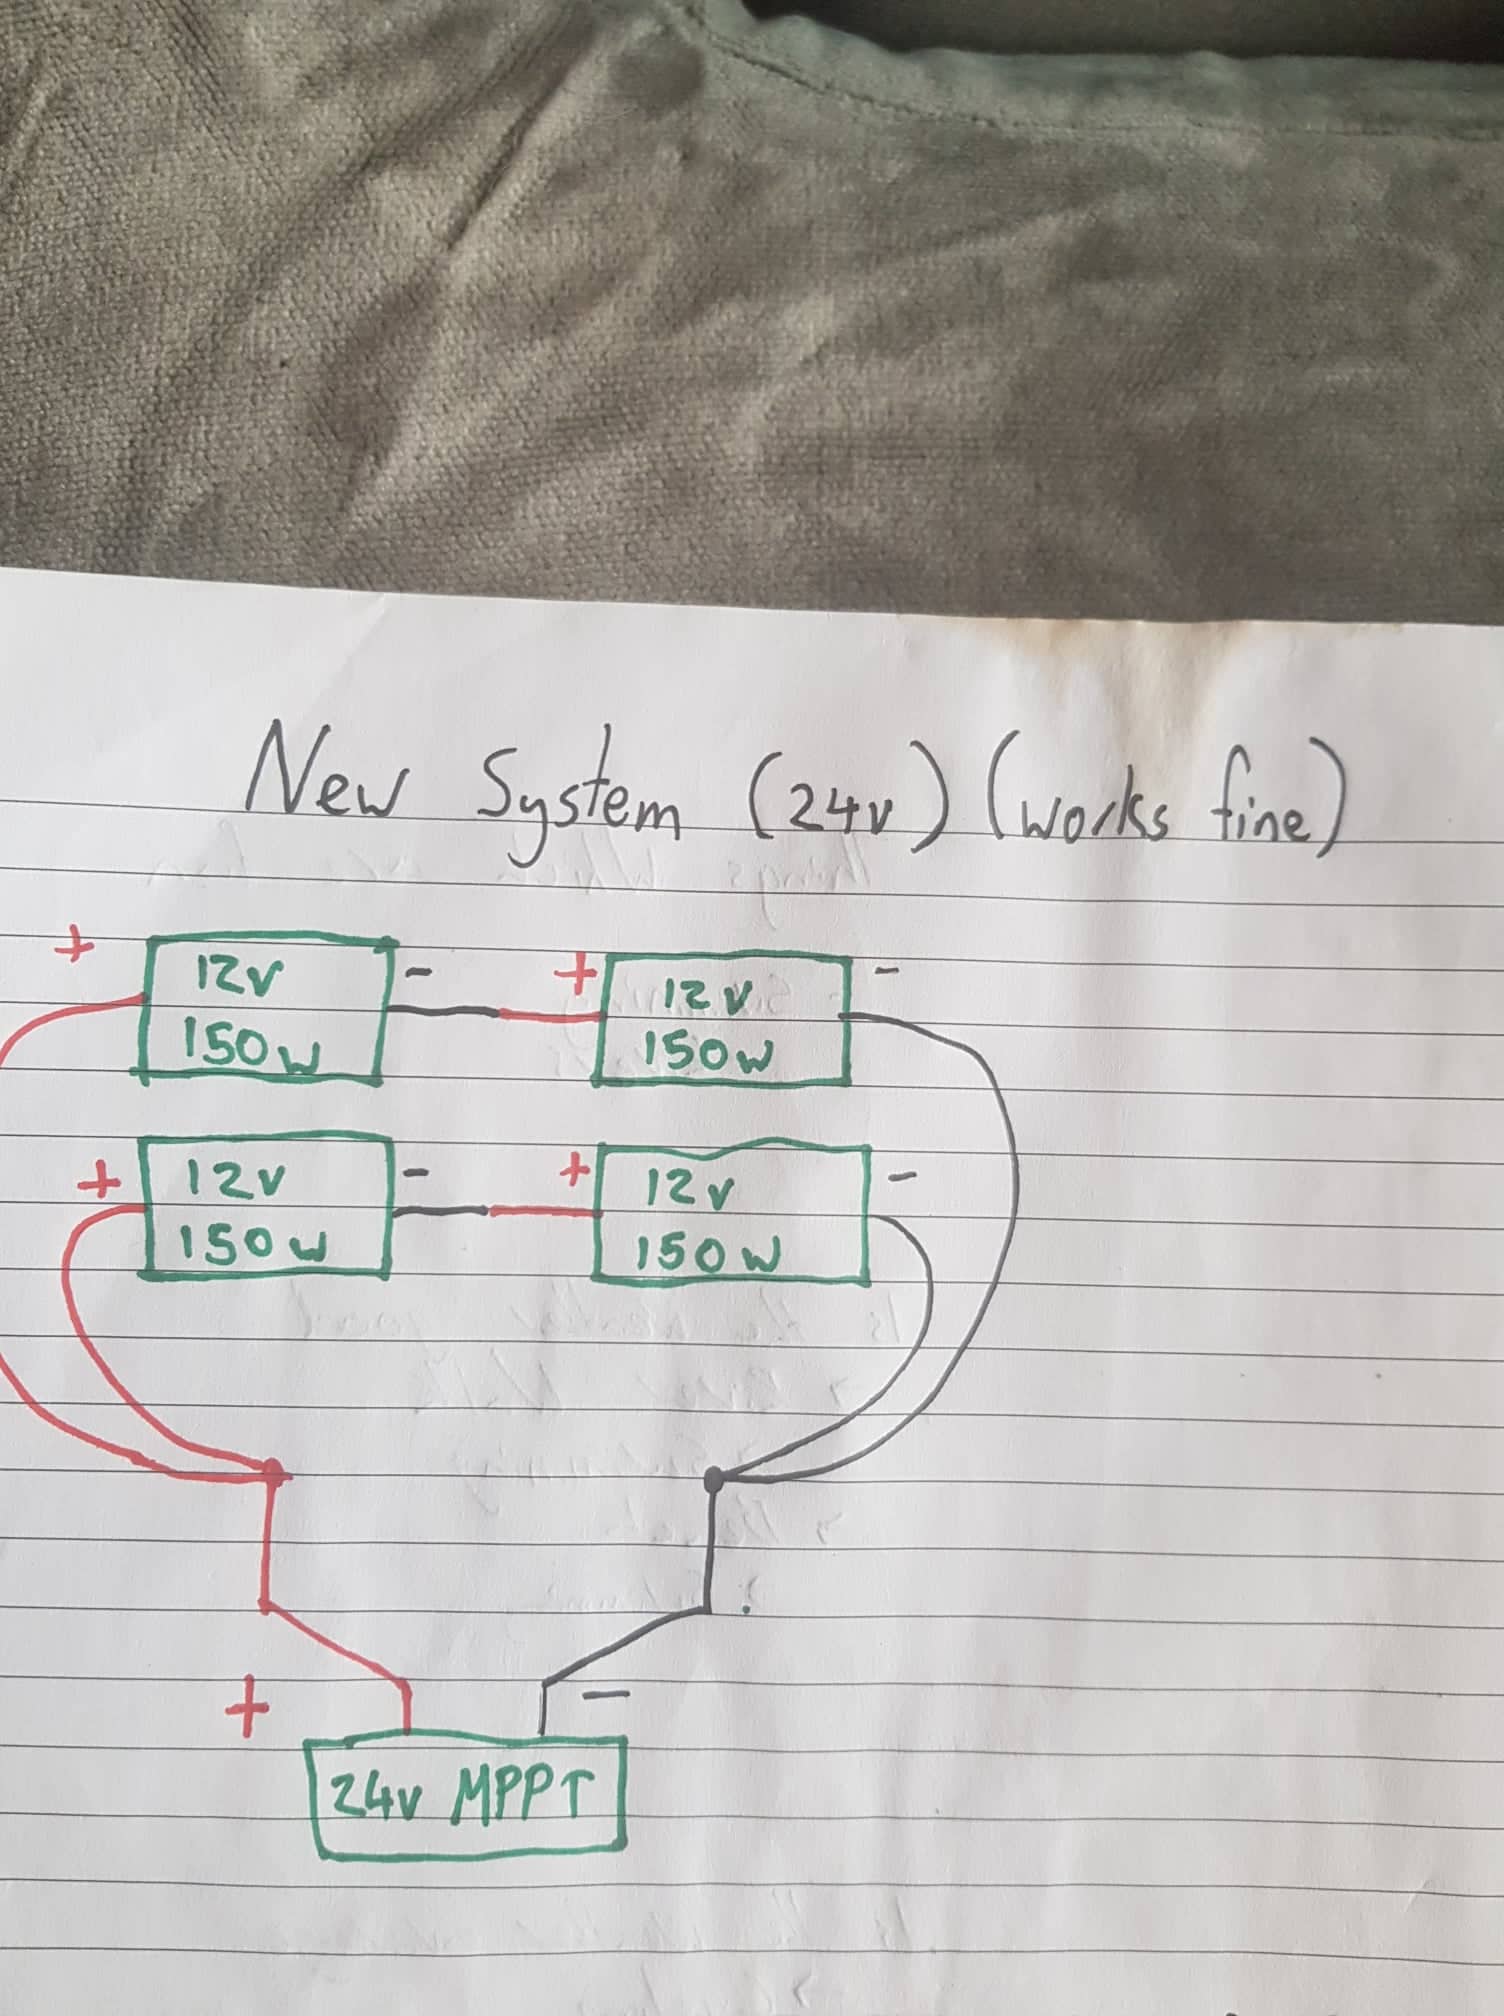 New System (24v) (works fine)
+ 12v - + 12v -
150w 150w
+ 12v - + 12v -
150w 150w
+ -
24v MPPT